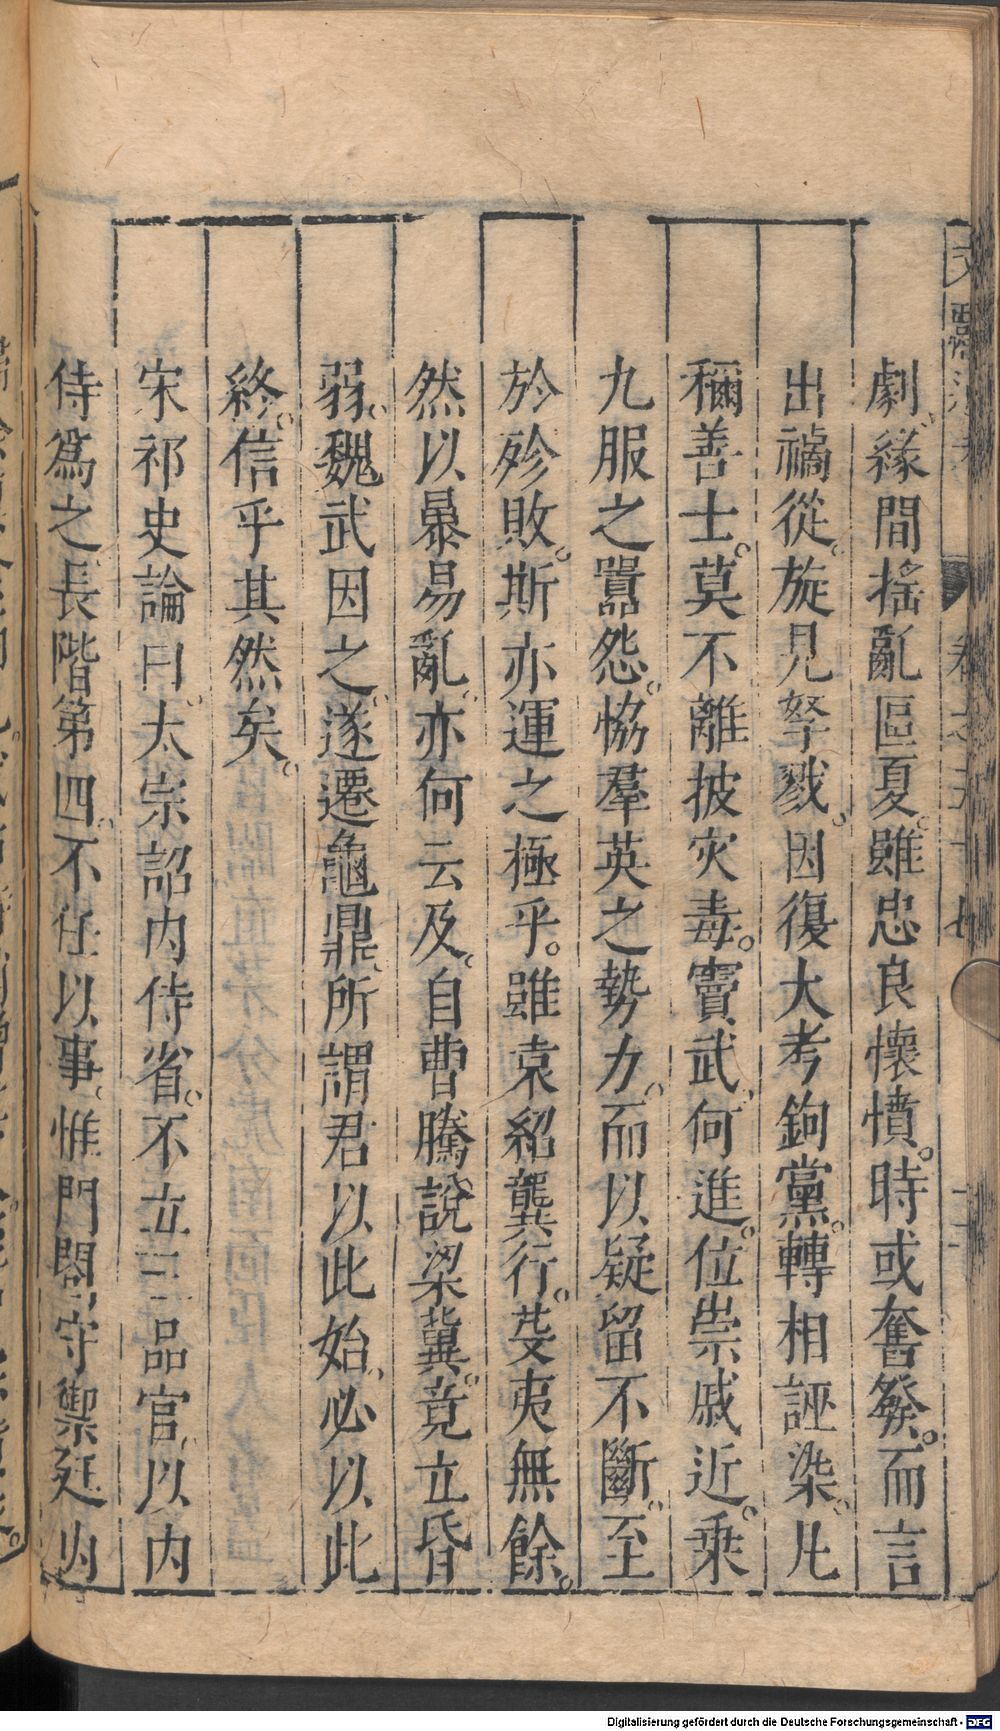 劇。緣間搖亂區夏。雖忠良懷憤。時或奮發。而言
出禍從。旋見孥戮。因復大考鉤黨。轉相誣染。凡
稱善士。莫不離披災毒。竇武。何進。位崇戚近。乗
九服之嚻怨。恊羣英之勢力。而以疑留不斷。至
於殄敗。斯亦運之極乎。雖袁紹龔行。芟夷無餘。
然以暴易亂。亦何云及。自曹騰說梁冀。竟立昏
弱。魏武因之。遂遷龜鼎。所謂君以此始。必以此
終。信乎其然矣。
宋祁史論曰。太宗詔内侍省。不立三品官。以内
侍爲之長階第四。不任以事。惟門閤守禦廷内
Digitalisierung gefördert durch die Deutsche Forschungsgemeinschaft - DFG